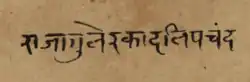 राजागुलेरकादलिपचंद